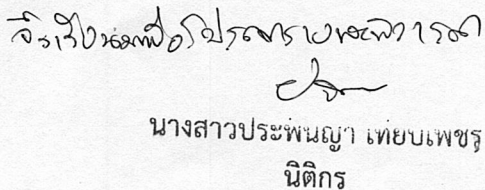 จึงเรียนมาเพื่อโปรดทราบและพิจารณา
นางสาวประพันญา เทียบเพชร
นิติกร